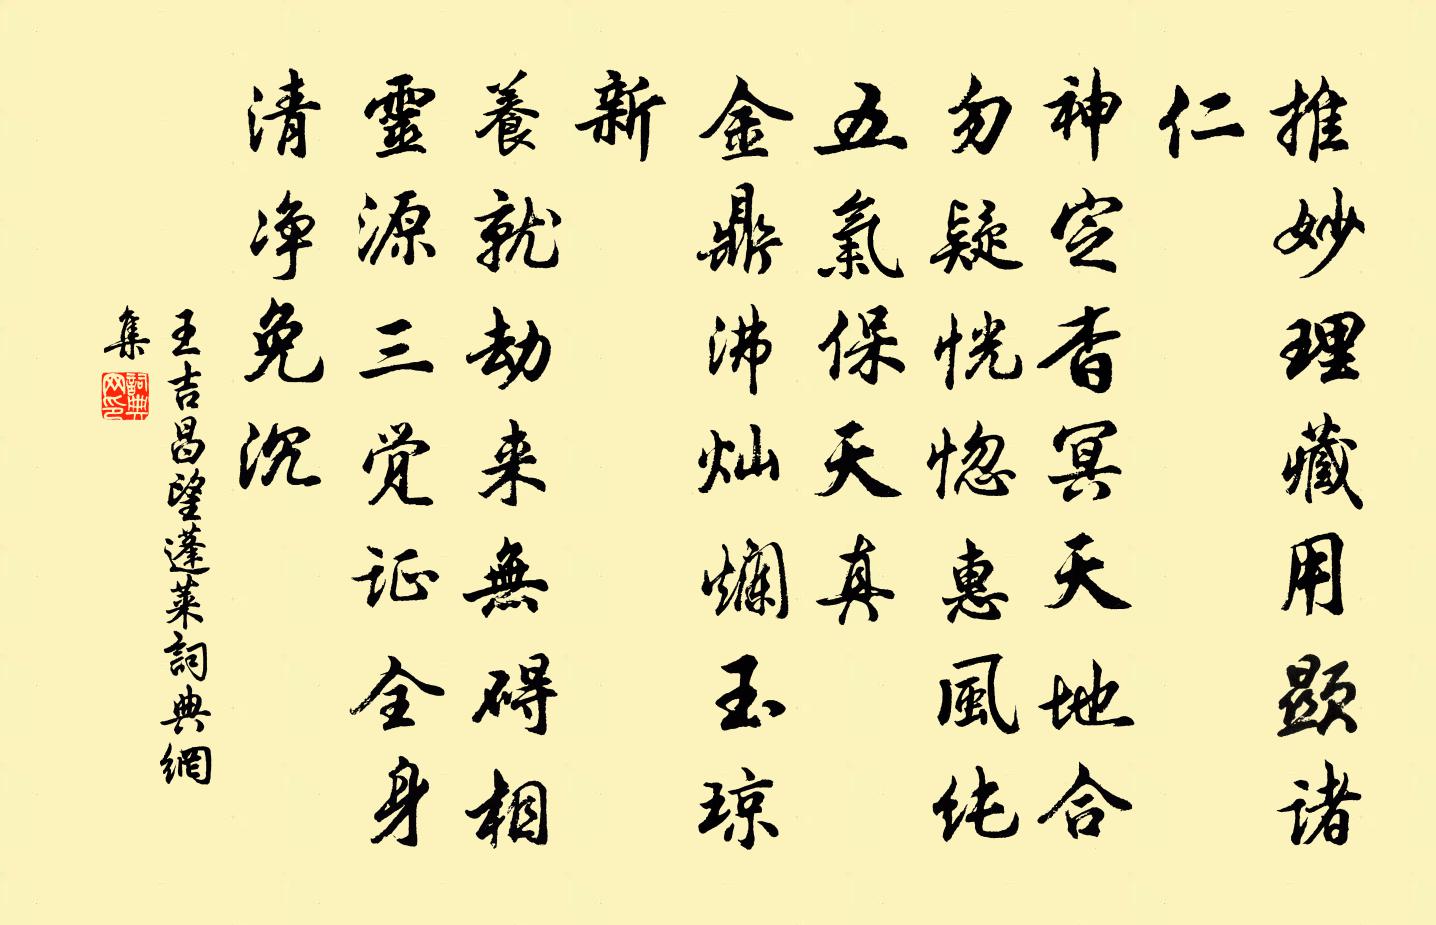 推妙理藏用顯诸
仁
神定杳冥天地合
勿疑恍惚惠風纯
五氣保天真
金鼎沸灿斓玉琼
新
養就劫来無碍相
靈源三觉证全身
清净免沉
王吉昌望蓬莱詞典網
集
詞典网印